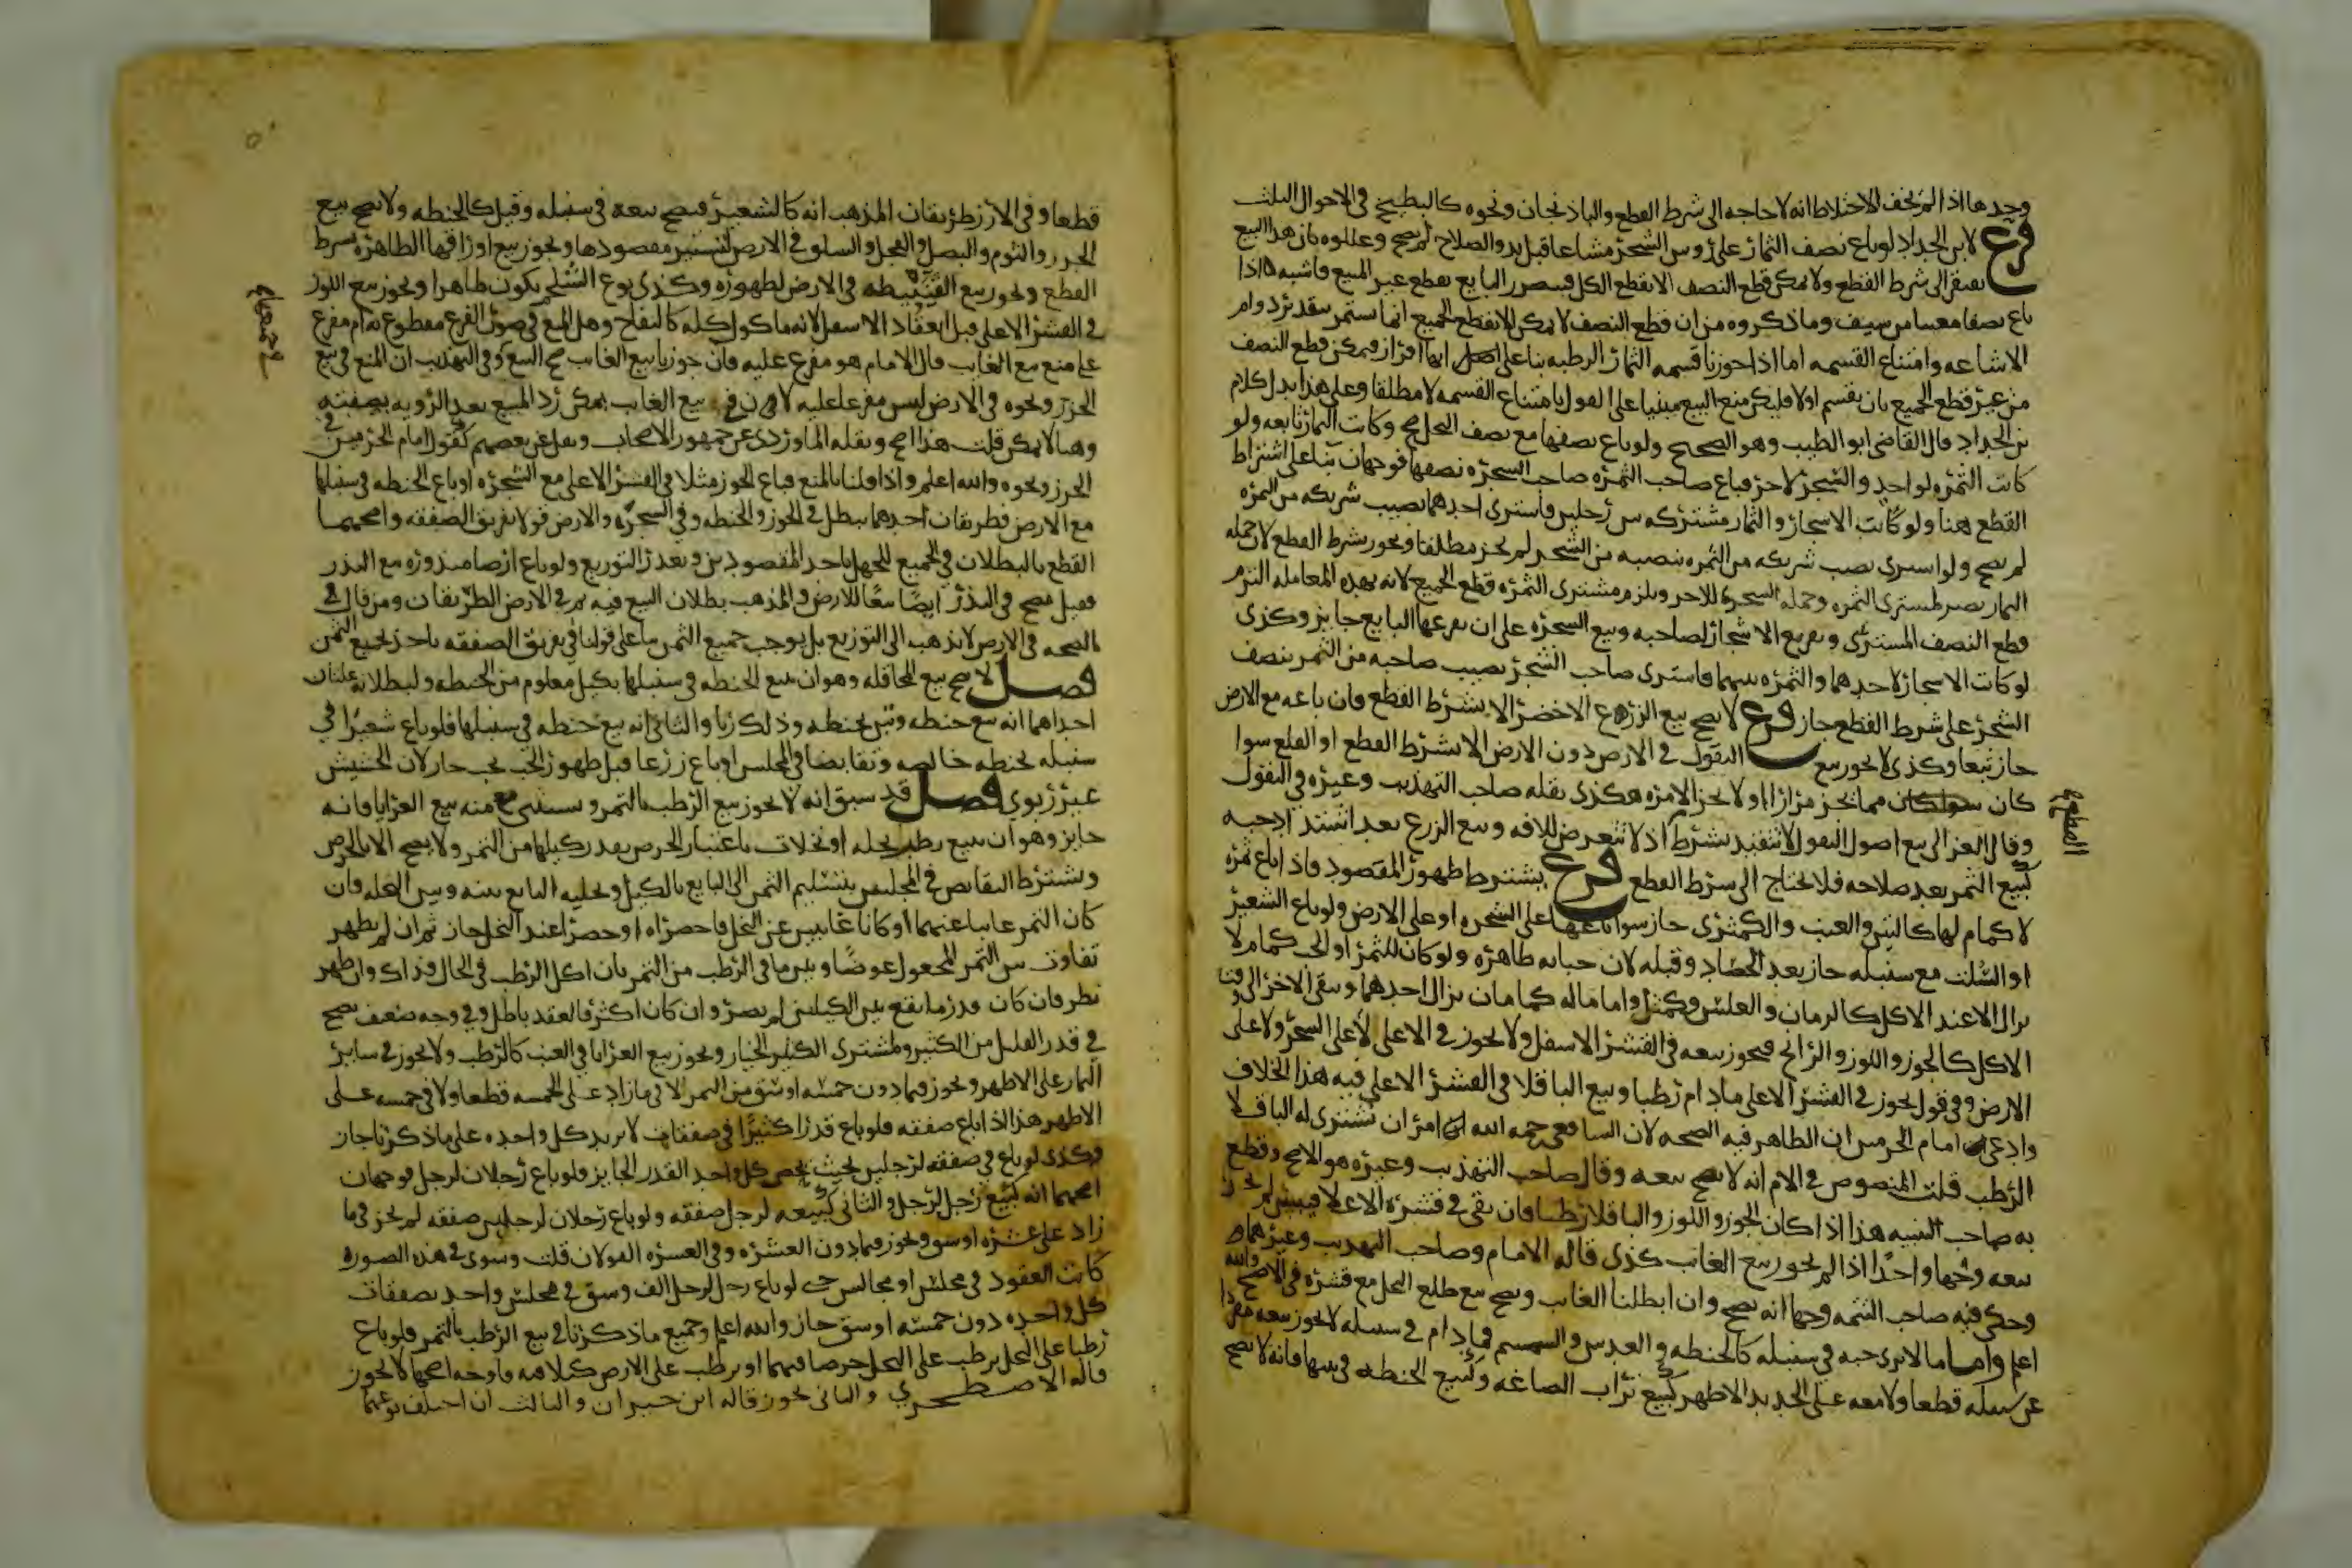 وجدها اذا لم يخف الاختلاط انه لا حاجه الى شرط القطع والباذنجان ونحوه كالبطيخ في الاحوال الثلث
فرع لابن الحداد لو باع نصف الثمار على روس الشجر مشاعا قبل بدو الصلاح لم يصح وعللوه بان هذا البيع
يفتقر الى شرط القطع ولا يمكن قطع النصف الا بقطع الكل فيتضرر البايع بقطع غير المبيع فاشبه ما اذا
باع نصفا معينا من سيف وما ذكروه من ان قطع النصف لا يمكن الا بقطع الجميع انما يستمر بتقدير دوام
الاشاعه وامتناع القسمه اما اذا جوزنا قسمه الثمار الرطبه بناء على انها افراز فيمكن قطع النصف
من غير قطع الجميع بان يقسم اولا فليكن منع البيع مبنيا على القول بامتناع القسمه لا مطلقا وعلى هذا يدل كلام
بن الحداد قال القاضي ابو الطيب وهو الصحيح ولو باع نصفها مع نصف النخل صح وكانت الثمار تابعه ولو
كانت الثمره لواحد والشجر لاخر فباع صاحب الثمره صاحب الشجره نصفها فوجهان بناء على اشتراط
القطع هنا ولو كانت الاشجار والثمار مشتركه بين رجلين فاشترى احدهما نصيب شريكه من الثمره
لم يصح ولو اشترى نصيب شريكه من الثمره بنصيبه من الشجر لم يجز مطلقا ويجوز بشرط القطع لان جمله
الثمار تصير لمشتري الثمره وجمله الشجره للاخر ويلزم مشتري الثمره قطع الجميع لانه بهذه المعامله التزم
قطع النصف المشترى وتفريغ الاشجار لصاحبه وبيع الشجره على ان يفرغها البايع جايز وكذى
لو كانت الاشجار لاحدهما والثمره بينهما فاشترى صاحب الشجر نصيب صاحبه من الثمر بنصف
الشجر على شرط القطع جاز فرع لا يصح بيع الزرع الاخضر الا بشرط القطع فان باعه مع الارض
جاز تبعا وكذى لا يجوز بيع البقول في الارض دون الارض الا بشرط القطع او القلع سوا
كان مما يجز مرارا او لا يجز الا مره هكذى نقله صاحب التهذيب وغيره وفي البقول
وقال الغزالي بيع اصول البقول لا يتقيد بشرط اذ لا تتعرض للافه وبيع الزرع بعد اشتداد حبه
كبيع الثمر بعد صلاحه فلا يحتاج الى شرط القطع فرع يشترط ظهور المقصود فاذا باع ثمره
لا كمام لها كالتين والعنب والكمثرى جاز سوا باعها على الشجره او على الارض ولو باع الشعير
او السلت مع سنبله جاز بعد الحصاد وقبله لان حباته ظاهره ولو كان للثمر او الحب كمام لا
يزال الا عند الاكل كالرمان والعلس فكمثل واما ما له كمامان يزال احدهما ويبقى الاخر الى وقت
الاكل كالجوز واللوز والرانج فيجوز بيعه في القشر الاسفل ولا يجوز في الاعلى لا على الشجر ولا على
الارض وفي قول يجوز في القشر الاعلى ما دام رطبا وبيع الباقلا في القشر الاعلى فيه هذا الخلاف
وادعى امام الحرمين ان الظاهر فيه الصحه لان الشافعي رحمه الله امر ان تشترى له الباقلا
الرطب قلت المنصوص في الام انه لا يصح بيعه وقال صاحب التهذيب وغيره هو الاصح وقطع
به صاحب التنبيه هذا اذا كان الجوز واللوز والباقلا رطبا فان بقي في قشره الاعلا فيبس لم يجز
بيعه وجها واحدا اذا لم يجوز بيع الغايب كذى قاله الامام وصاحب التهذيب وغيرهما
وحكى فيه صاحب التتمه وجها انه يصح وان ابطلنا الغايب ويصح بيع طلع النخل مع قشره في الاصح والله
اعلم واما ما لا يرى حبه في سنبله كالحنطه والعدس والسمسم فما دام في سنبله لا يجوز بيعه مفردا
عن سنبله قطعا ولا معه على الجديد الاظهر كبيع تراب الصاغه وكبيع الحنطه في تبنها فانه لا يصح
القطع
قطعا وفي الارز طريقان المذهب انه كالشعير فيصح بيعه في سنبله وقيل كالحنطه ولا يصح بيع
الجزر والثوم والبصل والفجل والسلق في الارض لتستر مقصودها ويجوز بيع اوراقها الظاهره بشرط
القطع ويجوز بيع القنبيطه في الارض لظهوره وكذى نوع الشلجم يكون ظاهرا ويجوز بيع اللوز
في القشر الاعلى قبل انعقاد الاسفل لانه ماكول كله كالتفاح وهل المنع في صور الفرع مقطوع به ام مفرع
على منع بيع الغايب قال الامام هو مفرع عليه فان جوزنا بيع الغايب صح البيع وفي التهذيب ان المنع في بيع
الجزر ونحوه في الارض ليس مفرعا عليه لان في بيع الغايب يمكن رد المبيع بعد الرويه بصفته
وهنا لا يمكن قلت هذا اصح ونقله الماوردي عن جمهور الاصحاب ونقل عن بعضهم كقول امام الحرمين في
الجزر ونحوه والله اعلم واذا قلنا بالمنع فباع الجوز مثلا في القشر الاعلى مع الشجره او باع الحنطه في سنبلها
مع الارض فطريقان احدهما يبطل في الجوز والحنطه وفي الشجره والارض قولا تفريق الصفقه واصحهما
القطع بالبطلان في الجميع للجهل باحد المقصودين وتعذر التوزيع ولو باع ارضا مبذوره مع البذر
فقيل يصح في البذر ايضا تبعا للارض والمذهب بطلان البيع فيه ثم في الارض الطريقان ومن قال في
بالصحه في الارض لا يذهب الى التوزيع بل يوجب جميع الثمن بناء على قولنا في تفريق الصفقه ياخذ بجميع الثمن
فصل لا يصح بيع المحاقله وهو ان يبيع الحنطه في سنبلها بكيل معلوم من الحنطه ولبطلانه علتان
احداهما انه بيع حنطه وتبن بحنطه وذلك ربا والثاني انه بيع حنطه في سنبلها فلو باع شعيرا في
سنبله بحنطه خالصه وتقابضا في المجلس او باع زرعا قبل ظهور الحب بحب جاز لان الحشيش
غير ربوي فصل قد سبق انه لا يجوز بيع الرطب بالتمر ويستثنى منه بيع العرايا فانه
جايز وهو ان يبيع رطب نخله او نخلات باعتبار الخرص بقدر كيلها من التمر ولا يصح الا بالخرص
ويشترط التقابض في المجلس بتسليم التمر الى البايع بالكيل وتخليه البايع بينه وبين النخله فان
كان التمر غايبا عنهما او كانا غايبين عن النخل فاحضراه او حضرا عند النخل جاز ثم ان لم يظهر
تفاوت بين التمر المجعول عوضا وبين ما في الرطب من التمر بان اكل الرطب في الحال فذاك وان ظهر
نظر فان كان قدر ما يقع بين الكيلين لم يضر وان كان اكثر فالعقد باطل وفي وجه ضعيف يصح
في قدر القليل من الكثير ولمشتري الكثير الخيار ويجوز بيع العرايا في العنب كالرطب ولا يجوز في ساير
الثمار على الاظهر ويجوز فيما دون خمسه اوسق من التمر لا فيما زاد على الخمسه قطعا ولا في خمسه على
الاظهر هذا اذا باع صفقه فلو باع قدرا كثيرا في صفقات لا يزيد كل واحده على ما ذكرنا جاز
وكذى لو باع في صفقه لرجلين بحيث يخص كل واحد القدر الجايز فلو باع رجلان لرجل فوجهان
اصحهما انه كبيع رجل لرجل والثاني كبيعه لرجل صفقه ولو باع رجلان لرجلين صفقه لم يجز فيما
زاد على عشره اوسق ويجوز فيما دون العشره وفي العشره القولان قلت وسوى في هذه الصوره
كانت العقود في مجلس او مجالس حتى لو باع رجل لرجل الف وسق في مجلس واحد بصفقات
كل واحده دون خمسه اوسق جاز والله اعلم وجميع ما ذكرنا في بيع الرطب بالتمر فلو باع
رطبا على النخل برطب على النخل خرصا فيهما او برطب على الارض كيلا فيه فاوجه اصحها لا يجوز
قاله الاصطخري والثاني يجوز قاله ابن خيران والثالث ان اختلف نوعهما